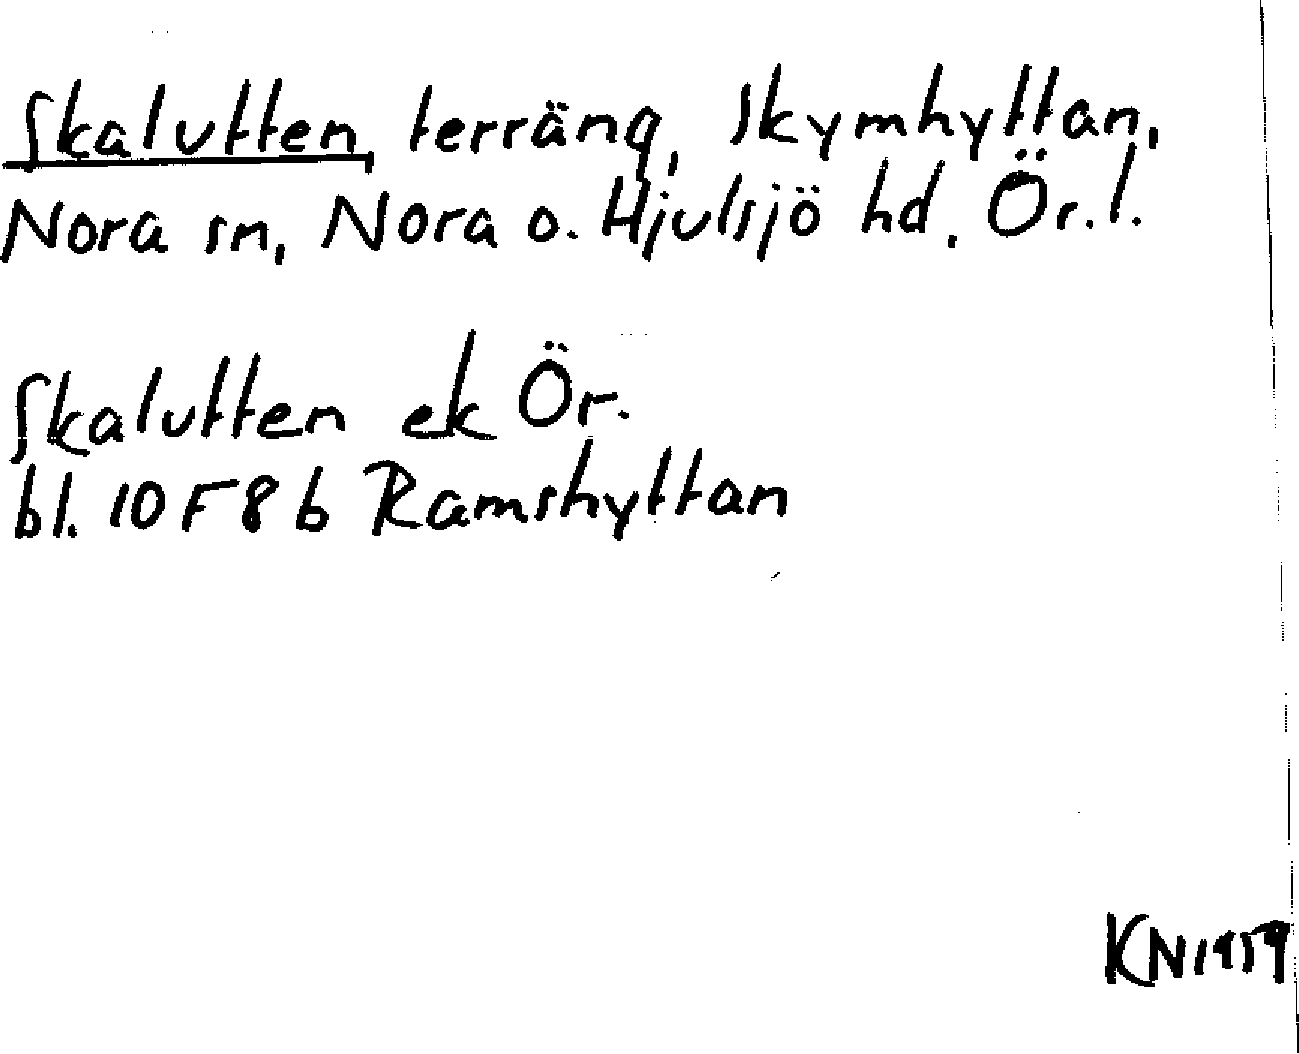 Skalutten, terräng, Skymhyttan,
Nora sn, Nora o. Hjulsjö hd, Ör. l.
Skalutten ek Ör.
bl. 10F8b Ramshyttan
KN1959